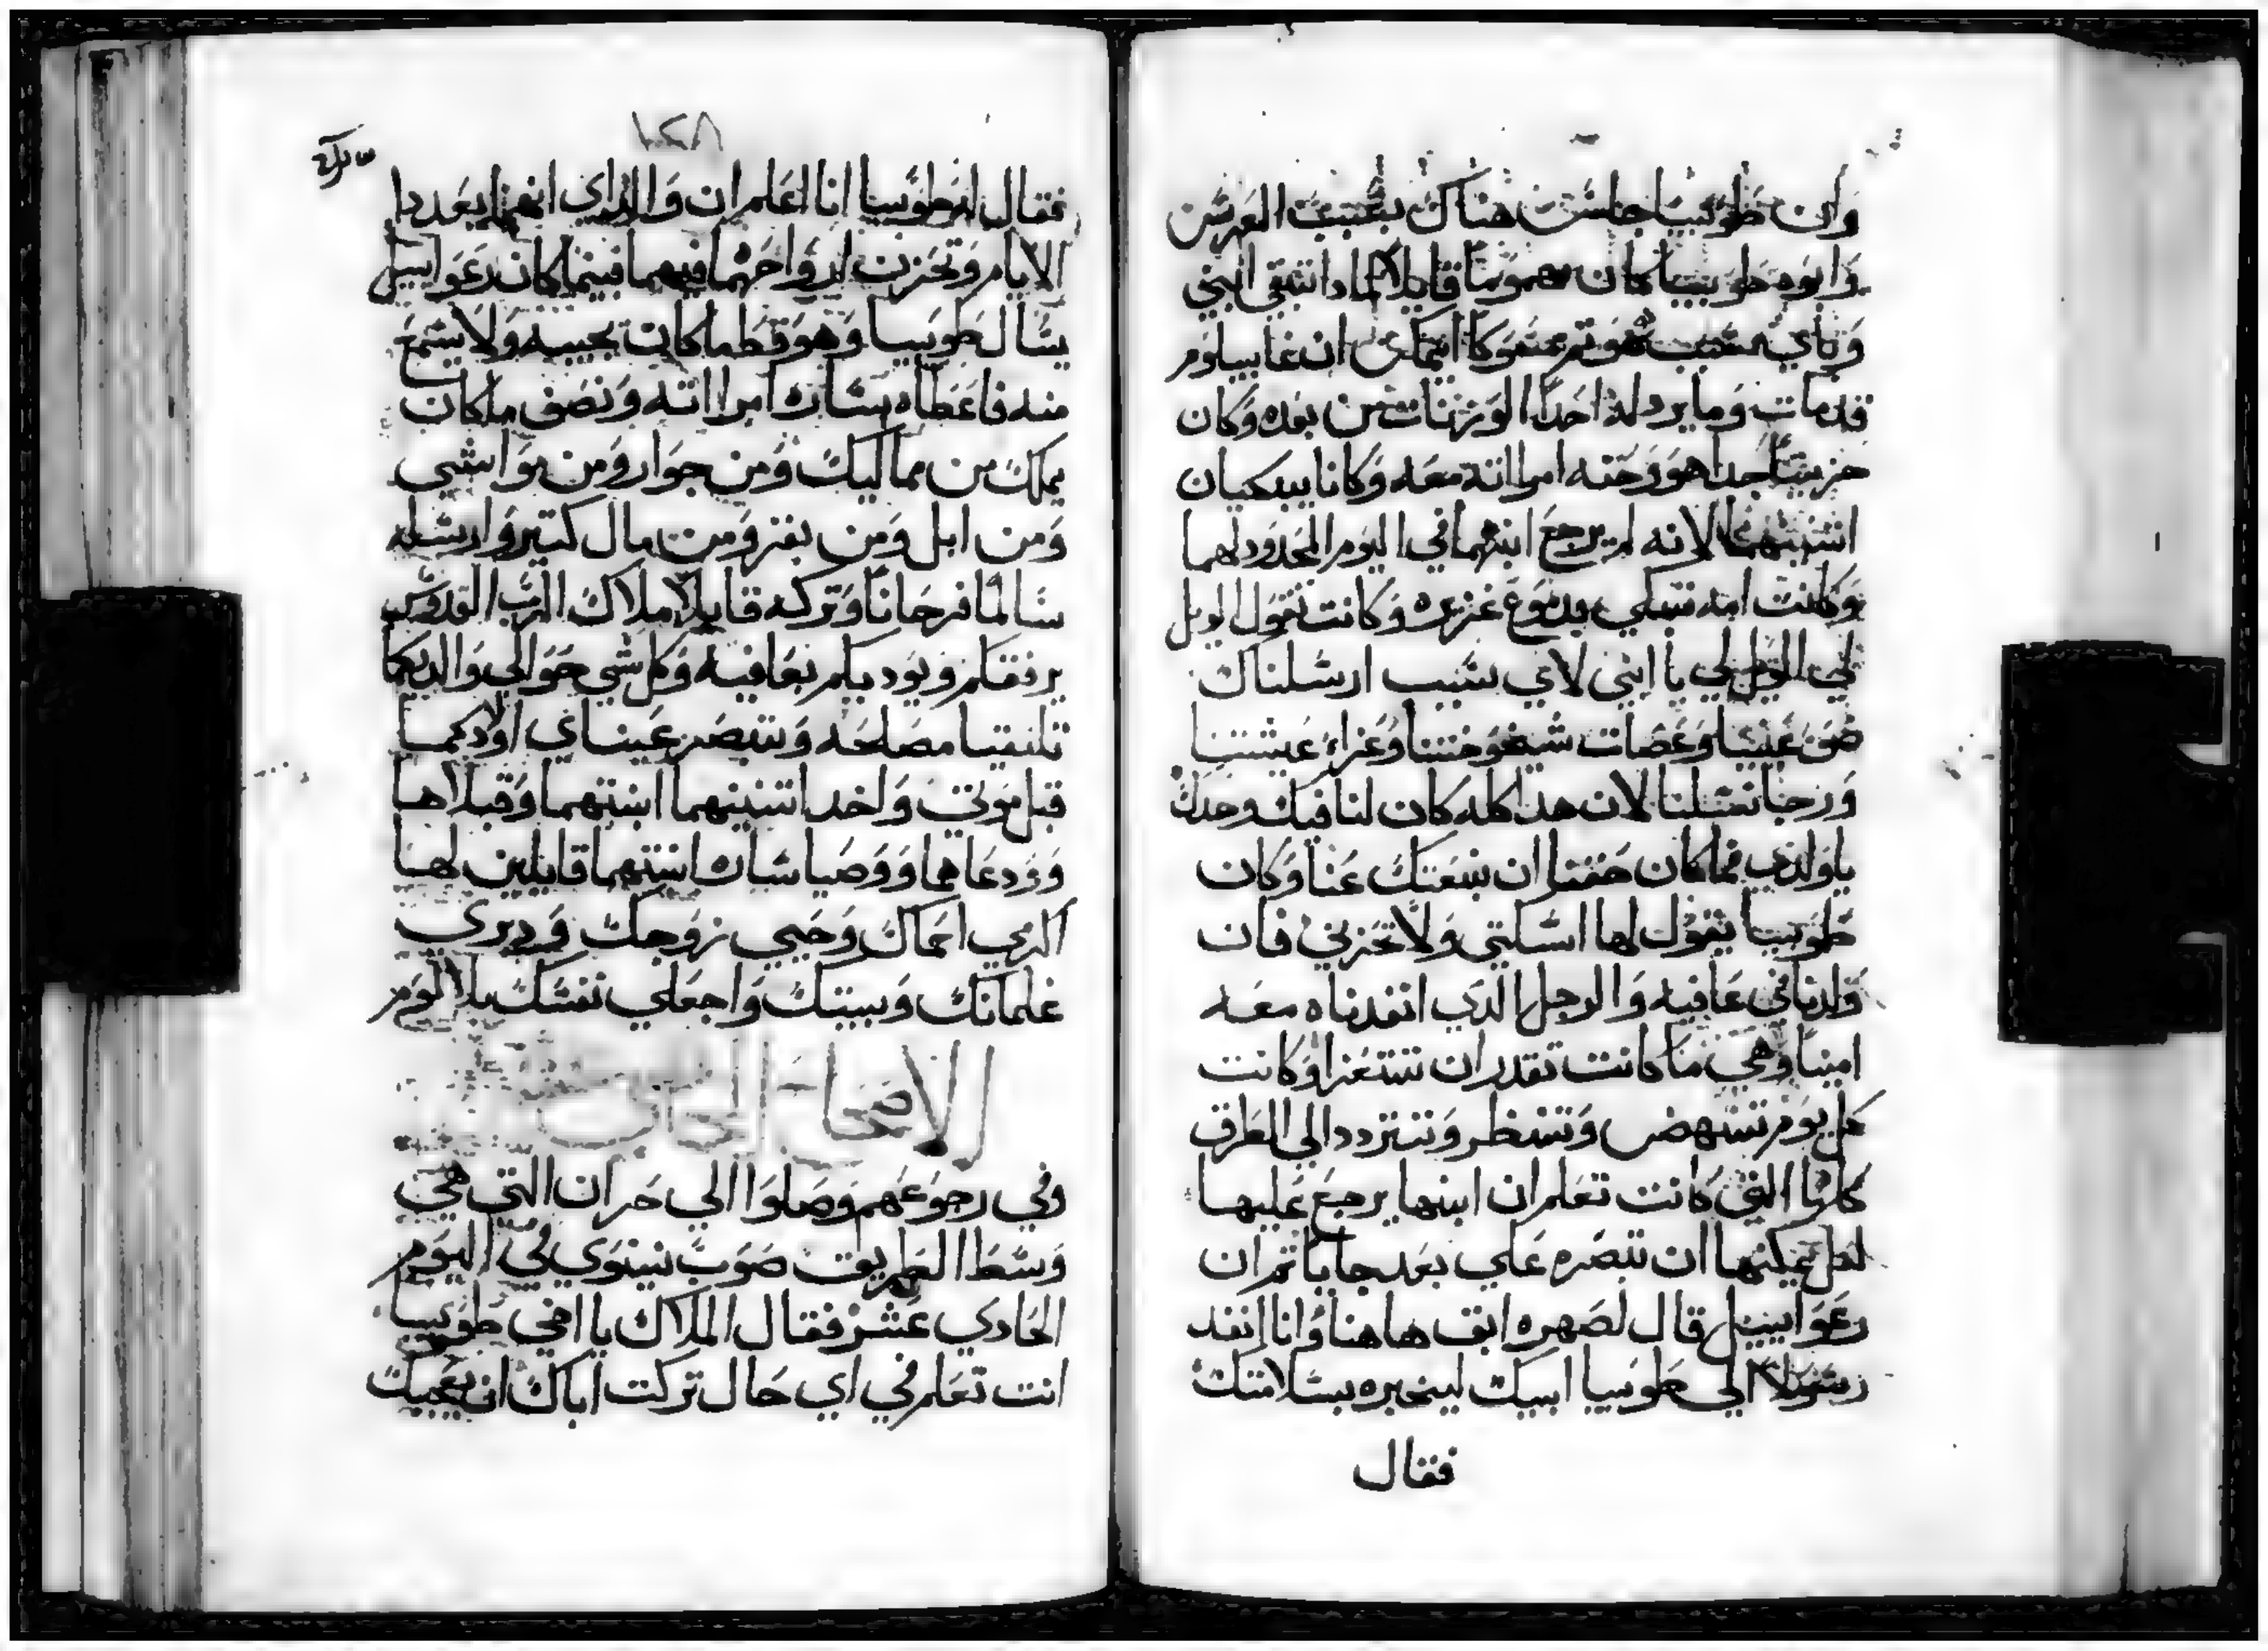 وان طوبيا جلس هناك بسبب العرس
وابوه طوبيا كان مهموما قايلا لمادا تبقي ابني
وباي سبب هو تم عوكا اتمكن ان غابيلوم
قد مات وما يرد له احدا الوزنات من بعده وكان
حزينا جدا هو وحنه امرااته معه وكانا يبكيان
اتنيهما لانه لم يرجع ابنهما في اليوم المحدود لهما
وكانت امه تبكي بدموع غزيره وكانت تقول الويل
لي الويل لي يا ابني لاي سبب ارسلناك
ضو عينينا وعصات شيخوختنا وعزاء عيشتنا
ورجا نسلنا لان هدا كله كان لنا فيك وحدك
يا ولدي فما كان حقنا ان نبعتك عنا وكان
طوبيا يقول لها اسكتي ولا تحزني فان
ولدنا في عافيه والرجل الدي انفدناه معه
امينا وهي ما كانت تقدر ان تتعزا وكانت
كل يوم تنهض وتنظر وتتردد الي الطرق
كلها التي كانت تعلم ان ابنها يرجع عليها
لعل يمكنها ان تبصره علي بعد جايا تم ان
رعواييل قال لصهره ابق هاهنا وانا انفد
رسولا الي طوبيا ابيك ليخبره بسلامتك
فقال
١٢٨
فقال له طوبيا انا اعلم ان والداي انهما يعددا
الايام وتحزن ارواحهما فيهما فبينما كان رعواييل
يسال طوبيا وهو قط ما كان يجيبه ولا يسمع
منه فاعطاه ساره امرااته ونصف ما كان
يملك من مماليك ومن جوار ومن مواشي
ومن ابل ومن بقر ومن مال كتير وارسله
سالما فرحانا وتركه قايلا ملاك الرب القدوس
يرفقكم ويوديكم بعافيه وكل شي حوالي والديكما
تلتقيا مصلحه وتبصر عيناي اولادكما
قبل موتي واخدا اتنينهما ابنتهما وقبلاها
وودعاهما ووصيا ساره ابنتهما قايلين لها
اكرمي احماك وحبي زوجك ودبري
غلمانك وبيتك واجعلي نفسك بلا لوم
الاصحاح الحادي
وفي رجوعهم وصلوا الي حران التي هي
وسط الطريق صوب نينوي في اليوم
الحادي عشر فقال الملاك يا اخي طوبيا
انت تعلم في اي حال تركت اباك ان يعجبك